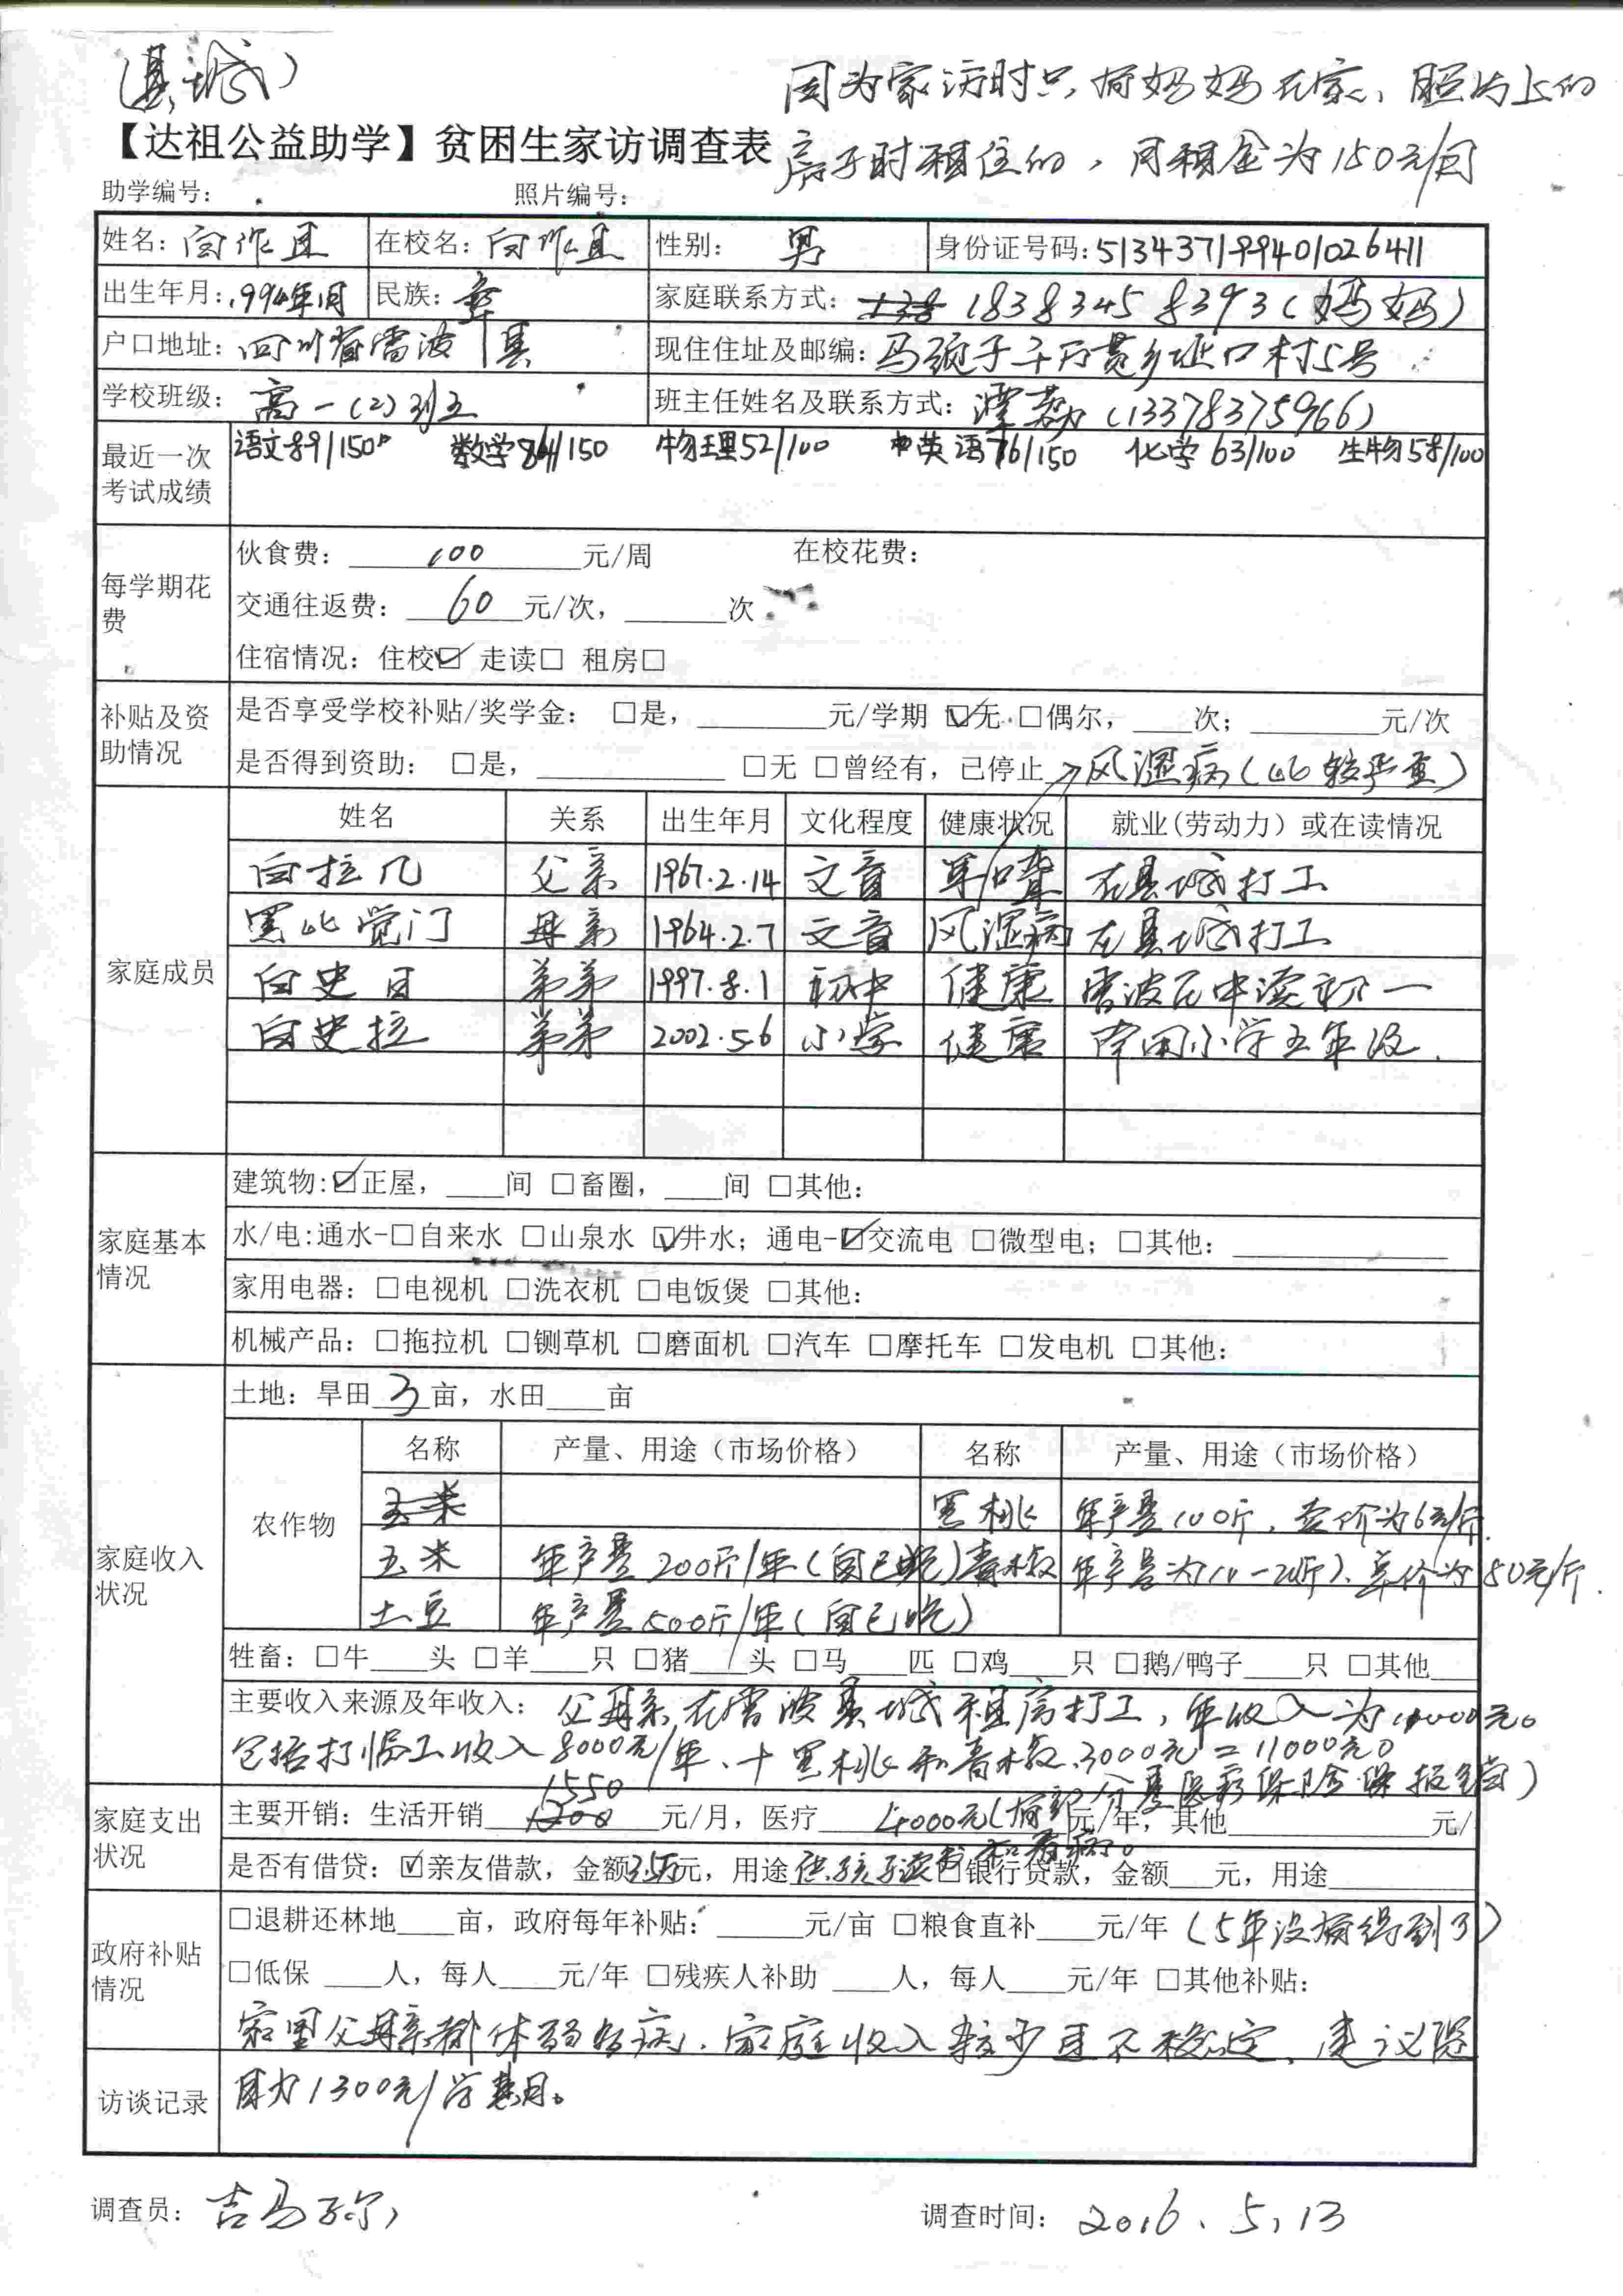 （县城）
因为家访时只有妈妈在家、照片上的
房子时租住的，月租金为150元/月
【达祖公益助学】贫困生家访调查表
助学编号： 照片编号：
姓名： 在校名： 性别：男 身份证号码：513437199401026411
出生年月：1994年1月 民族：彝 家庭联系方式：18383458393（妈妈）
户口地址：四川省雷波县 现住住址及邮编：马颈子千万贯乡 口村5号
学校班级：高一（2）班 班主任姓名及联系方式： （13378375966）
最近一次考试成绩 语文89/150 数学 /150 物理52/100 英语76/150 化学63/100 生物58/100
每学期花费 伙食费：100元/周 在校花费：
交通往返费：60元/次，____次
住宿情况：住校☑ 走读□ 租房□
补贴及资助情况 是否享受学校补贴/奖学金：□是，____元/学期 ☑无 □偶尔，____次；____元/次
是否得到资助：□是，____ □无 □曾经有，已停止 风湿病（比较严重）
家庭成员 姓名 关系 出生年月 文化程度 健康状况 就业(劳动力）或在读情况
白拉几 父亲 1967.2.14 文盲 耳聋 在县城打工
黑比觉门 母亲 1964.2.7 文盲 风湿病 在县城打工
白史日 弟弟 1997.8.1 初中 健康 雷波民中读初一
白史拉 弟弟 2002.5.6 小学 健康 小学五年级.
家庭基本情况 建筑物:☑正屋，____间 □畜圈，____间 □其他：
水/电:通水-□自来水 □山泉水 ☑井水；通电-☑交流电 □微型电；□其他：____
家用电器：□电视机 □洗衣机 □电饭煲 □其他：
机械产品：□拖拉机 □铡草机 □磨面机 □汽车 □摩托车 □发电机 □其他：
家庭收入状况 土地：旱田3亩，水田____亩
农作物 名称 产量、用途（市场价格） 名称 产量、用途（市场价格）
玉米 黑桃 年产量100斤，卖价为6元/斤.
玉米 年产量200斤/年（自己吃） 青椒 年产量为（10-20斤）、单价为50元/斤.
土豆 年产量500斤/年（自己吃）
牲畜：□牛____头 □羊____只 □猪 1 头 □马____匹 □鸡____只 □鹅/鸭子____只 □其他____
主要收入来源及年收入：父母亲在雷波县城租房打工，年收入为 元。
包括打临工收入8000元/年、十黑桃和青椒3000元=11000元。
家庭支出状况 主要开销：生活开销1550元/月，医疗4000元（有部分是医疗保险 报销）元/年，其他____元/
是否有借贷：☑亲友借款，金额3.5万元，用途供孩子读书和看病。□银行贷款，金额___元，用途____
政府补贴情况 □退耕还林地____亩，政府每年补贴：____元/亩 □粮食直补____元/年（5年没有得到了）
□低保 ____人，每人____元/年 □残疾人补助 ____人，每人____元/年 □其他补贴：
家里父母亲都体弱多病，家庭收入较少且不稳定，建议
访谈记录 为1300元/学期。
调查员：吉马 调查时间：2016、5,13